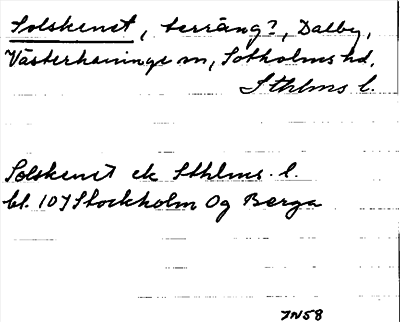 Solskenet, terräng?, Dalby,
Västerhaninge sn, Sotholms hd,
Sthlms l.
Solskenet ek Sthlms l.
bl. 107 Stockholm Og Berga
JN58